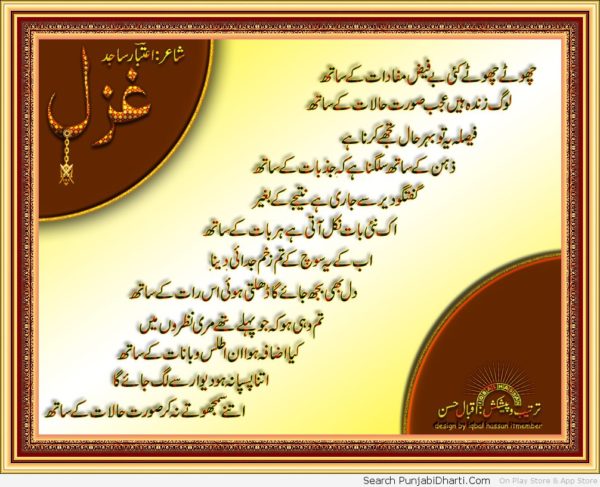 شاعر: اعتبار ساجد
غزل
چھوٹے چھوٹے کئی بے فیض مفادات کے ساتھ
لوگ زندہ ہیں عجب صورت حالات کے ساتھ
فیصلہ یہ تو بہر حال تجھے کرنا ہے
ذہن کے ساتھ سلگنا ہے کہ جذبات کے ساتھ
گفتگو دیر سے جاری ہے نتیجے کے بغیر
اک نئی بات نکل آتی ہے ہر بات کے ساتھ
اب کے یہ سوچ کے تم زخم جدائی دینا
دل بھی بجھ جائے گا ڈھلتی ہوئی اس رات کے ساتھ
تم وہی ہو کہ جو پہلے تھے مری نظروں میں
کیا اضافہ ہوا ان اطلس و بانات کے ساتھ
اتنا پسپا نہ ہو دیوار سے لگ جائے گا
اتنے سمجھوتے نہ کر صورت حالات کے ساتھ
ترتیب و پیشکش: اقبال حسن
design by iqbal hassan itmember
Search PunjabiDharti.Com On Play Store & App Store